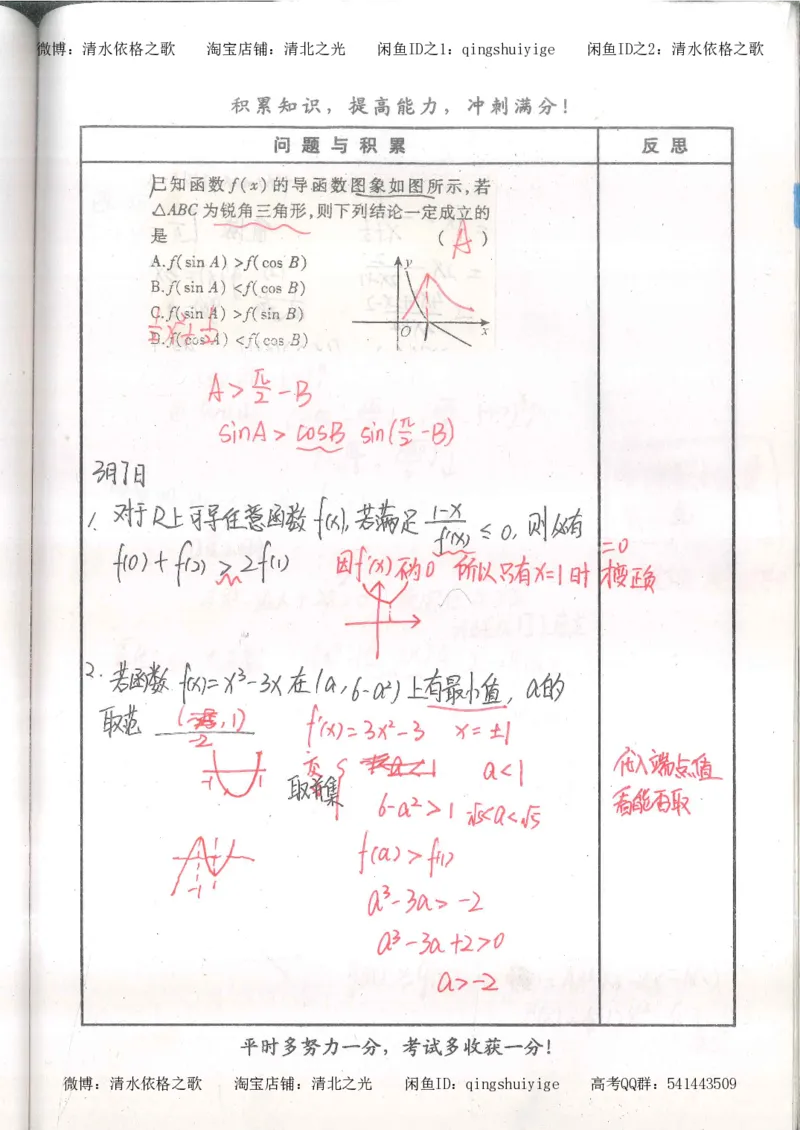 微博：清水依格之歌 淘宝店铺：清北之光 闲鱼ID之1：qingshuiyige 闲鱼ID之2：清水依格之歌
积累知识，提高能力，冲刺满分！
问题与积累 反思
已知函数f(x)的导函数图象如图所示,若
△ABC为锐角三角形,则下列结论一定成立的
是 ( A )
A.f(sin A)>f(cos B)
B.f(sin A)<f(cos B)
C.f(sin A)>f(sin B)
D.f(cos A)<f(cos B)
y
O x
A>π/2-B
sinA>cosB sin(π/2-B)
3月7日
1. 对于R上可导任意函数f(x),若满足(1-x)/f'(x)≤0,则必有
f(0)+f(2)≥2f(1) 因f'(x)不为0 所以只有x=1时
=0
2. 若函数f(x)=x³-3x在(a,6-a²)上有最小值,a的
取范 ( ,1)
-2
f'(x)=3x²-3 x=±1
-1 1
a<1
取并集
6-a²>1 -√5<a<√5
f(a)>f(1)
-1 1
a³-3a>-2
a³-3a+2>0
a>-2
代入端点值
看能否取
平时多努力一分，考试多收获一分！
微博：清水依格之歌 淘宝店铺：清北之光 闲鱼ID：qingshuiyige 高考QQ群：541443509